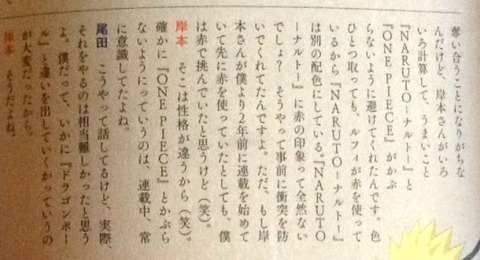 奪い合うことになりがちな
んだけど、岸本さんがいろ
いろ計算して、うまいこと
『NARUTOーナルトー』と
『ONE PIECE』がかぶ
らないように避けてくれたんです。色
ひとつ取っても、ルフィが赤を使って
いるから『NARUTOーナルトー』
は別の配色にしている『NARUTO
ーナルトー』に赤の印象って全然ない
でしょ？ そうやって事前に衝突を防
いでくれてたんですよ。ただ、もし岸
本さんが僕より2年前に連載を始めて
いて先に赤を使っていたとしても、僕
は赤で挑んでいたと思うけど（笑）。
岸本 そこは性格が違うから（笑）。
確かに『ONE PIECE』とかぶら
ないようにっていうのは、連載中、常
に意識してたよね。
尾田 こうやって話してるけど、実際
それをやるのは相当難しかったと思う
よ。僕だって、いかに『ドラゴンボー
ル』と違いを出していくかっていうの
が大変だったから。
岸本 そうだよね。